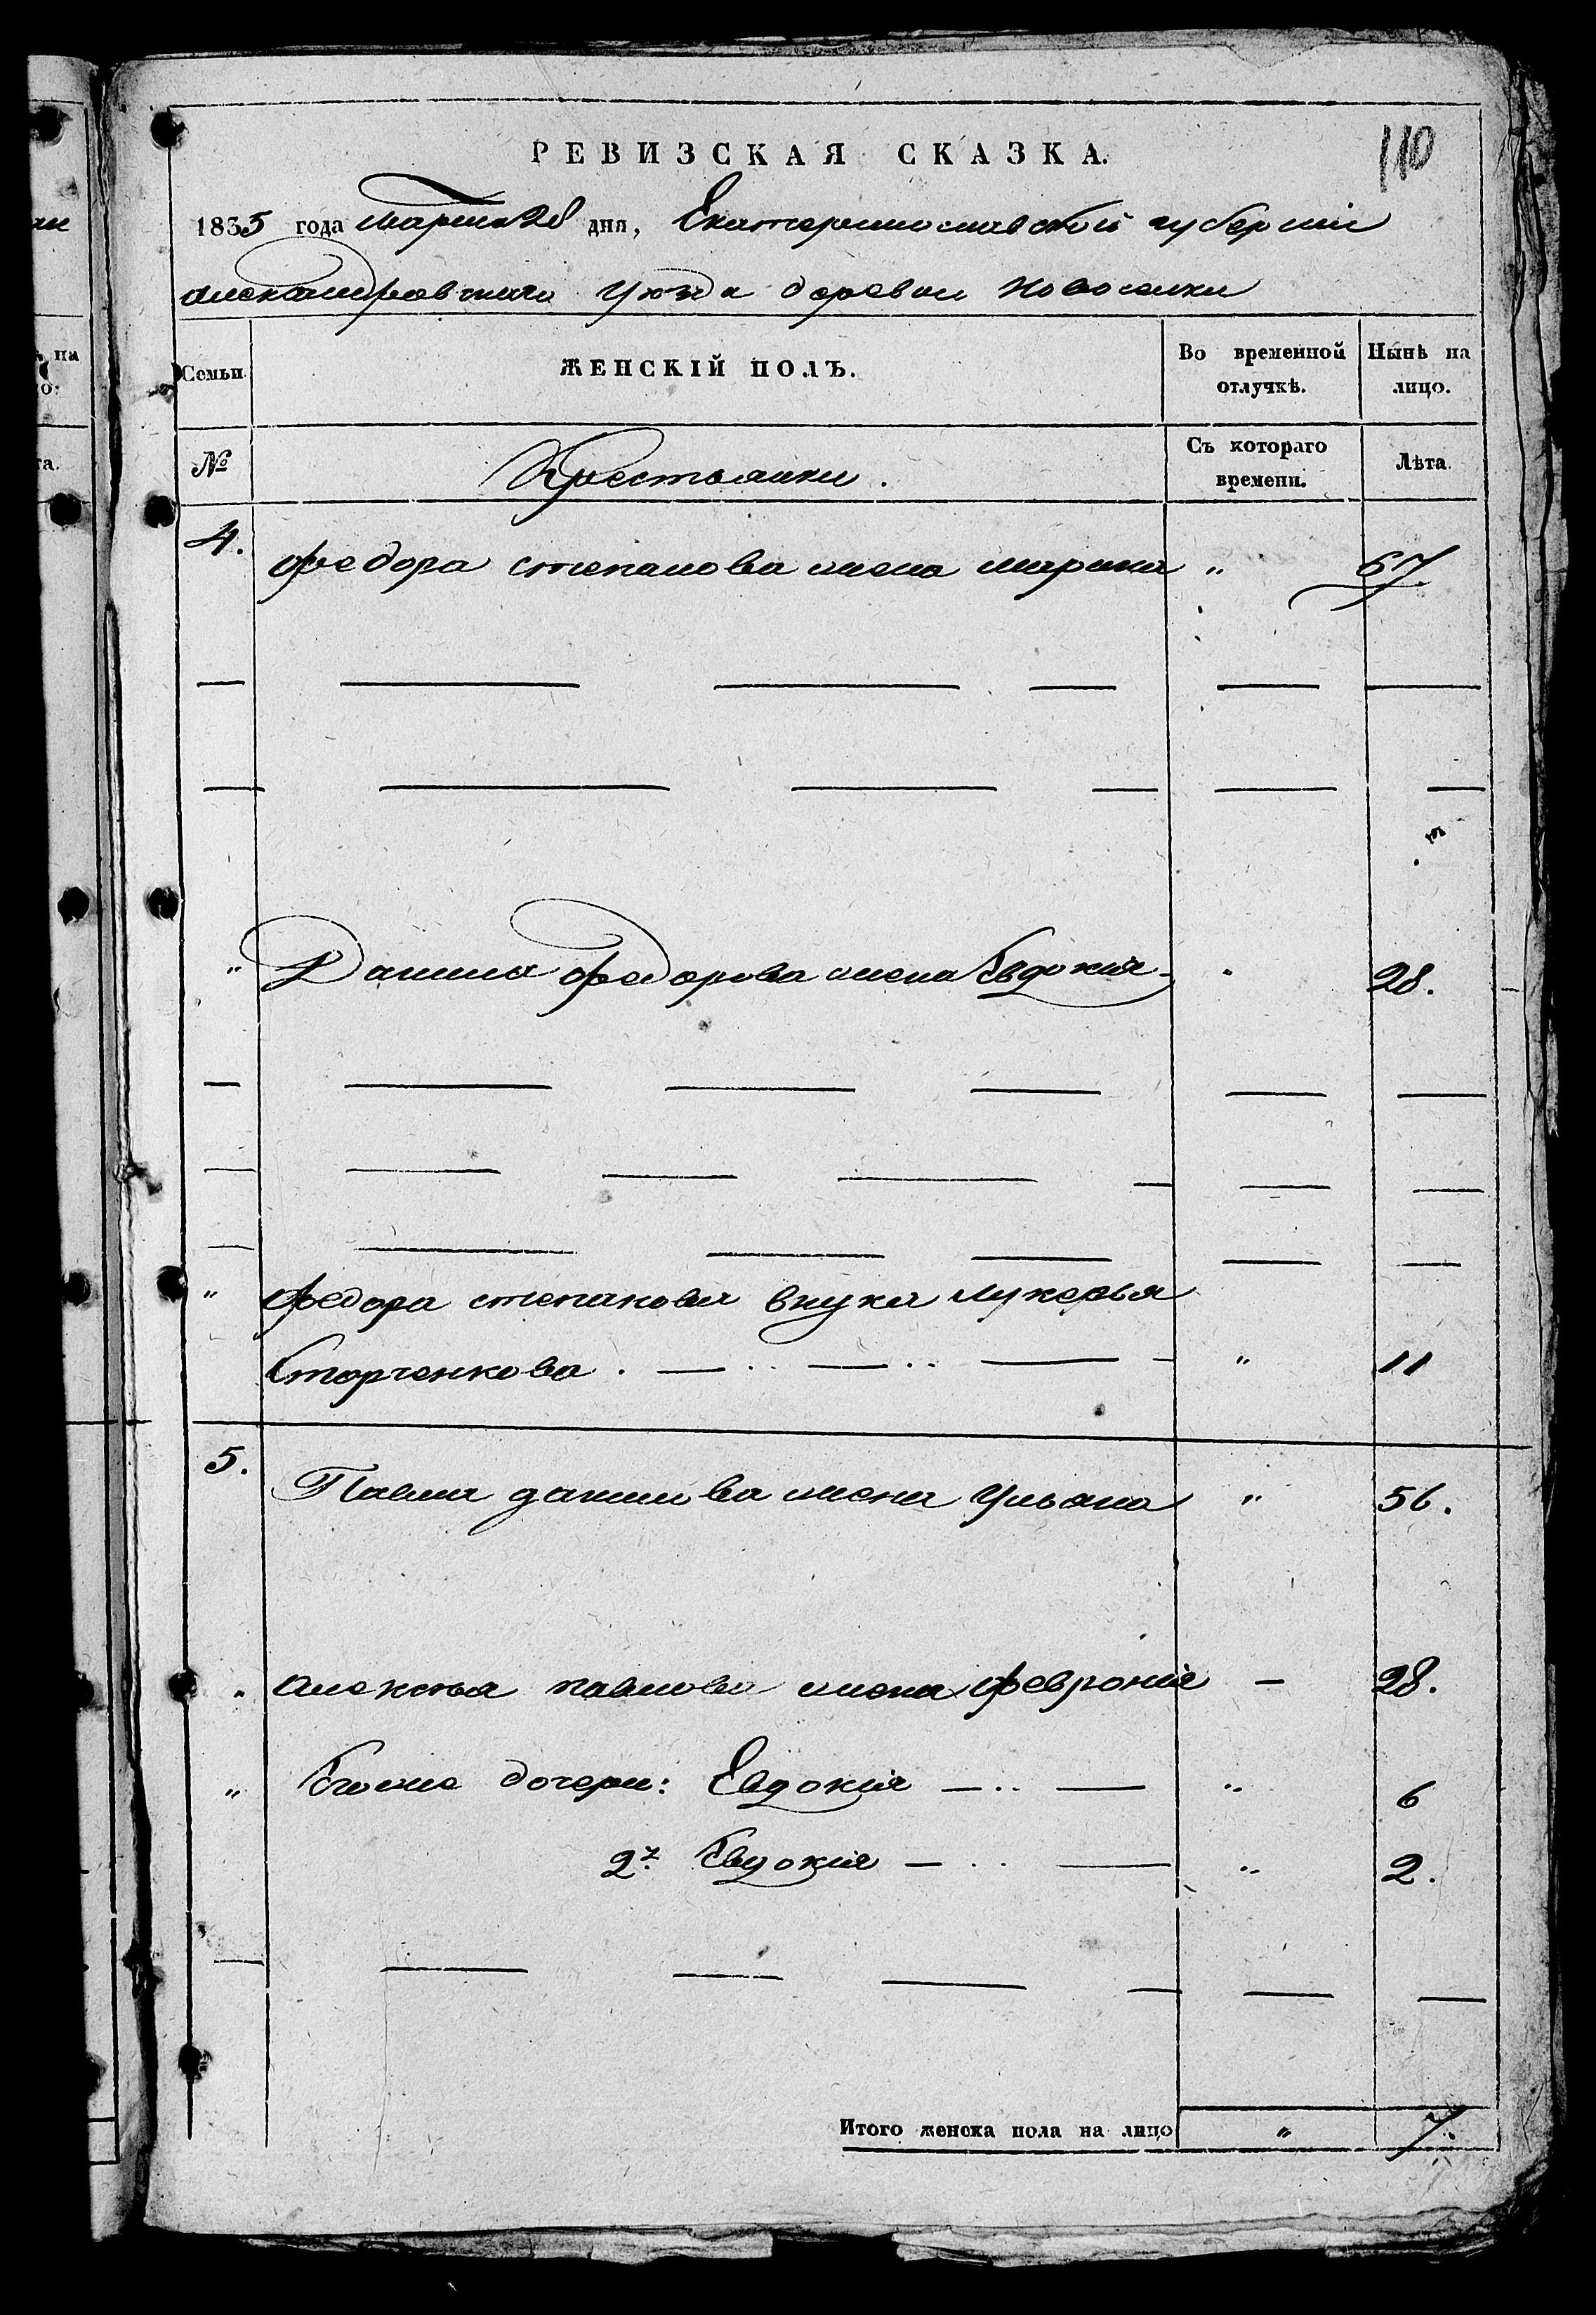 110
РЕВИЗСКАЯ СКАЗКА.
1835 года Марта 28 дня, Екатеринославской губерніи
Александровскаго уѣзда деревни Новоселки
Семьи ЖЕНСКІЙ ПОЛЪ. Во временной отлучкѣ. Нынѣ на лицо.
№ Крестьянки. Съ котораго времени. Лѣта.
4. Федора степанова жена марина " 67
" Данила Федорова жена Евдокия " 28.
" Федора степанова внука лукерья
Сторченкова. — .. — .. — " 11
5. Павла данилова жена Ульяна " 56.
" алексѣя павлова жена феврония — 28.
" Егоже дочери: Евдокия — .. — " 6
2я Евдокия — .. — " 2.
Итого женска пола на лицо " 7.